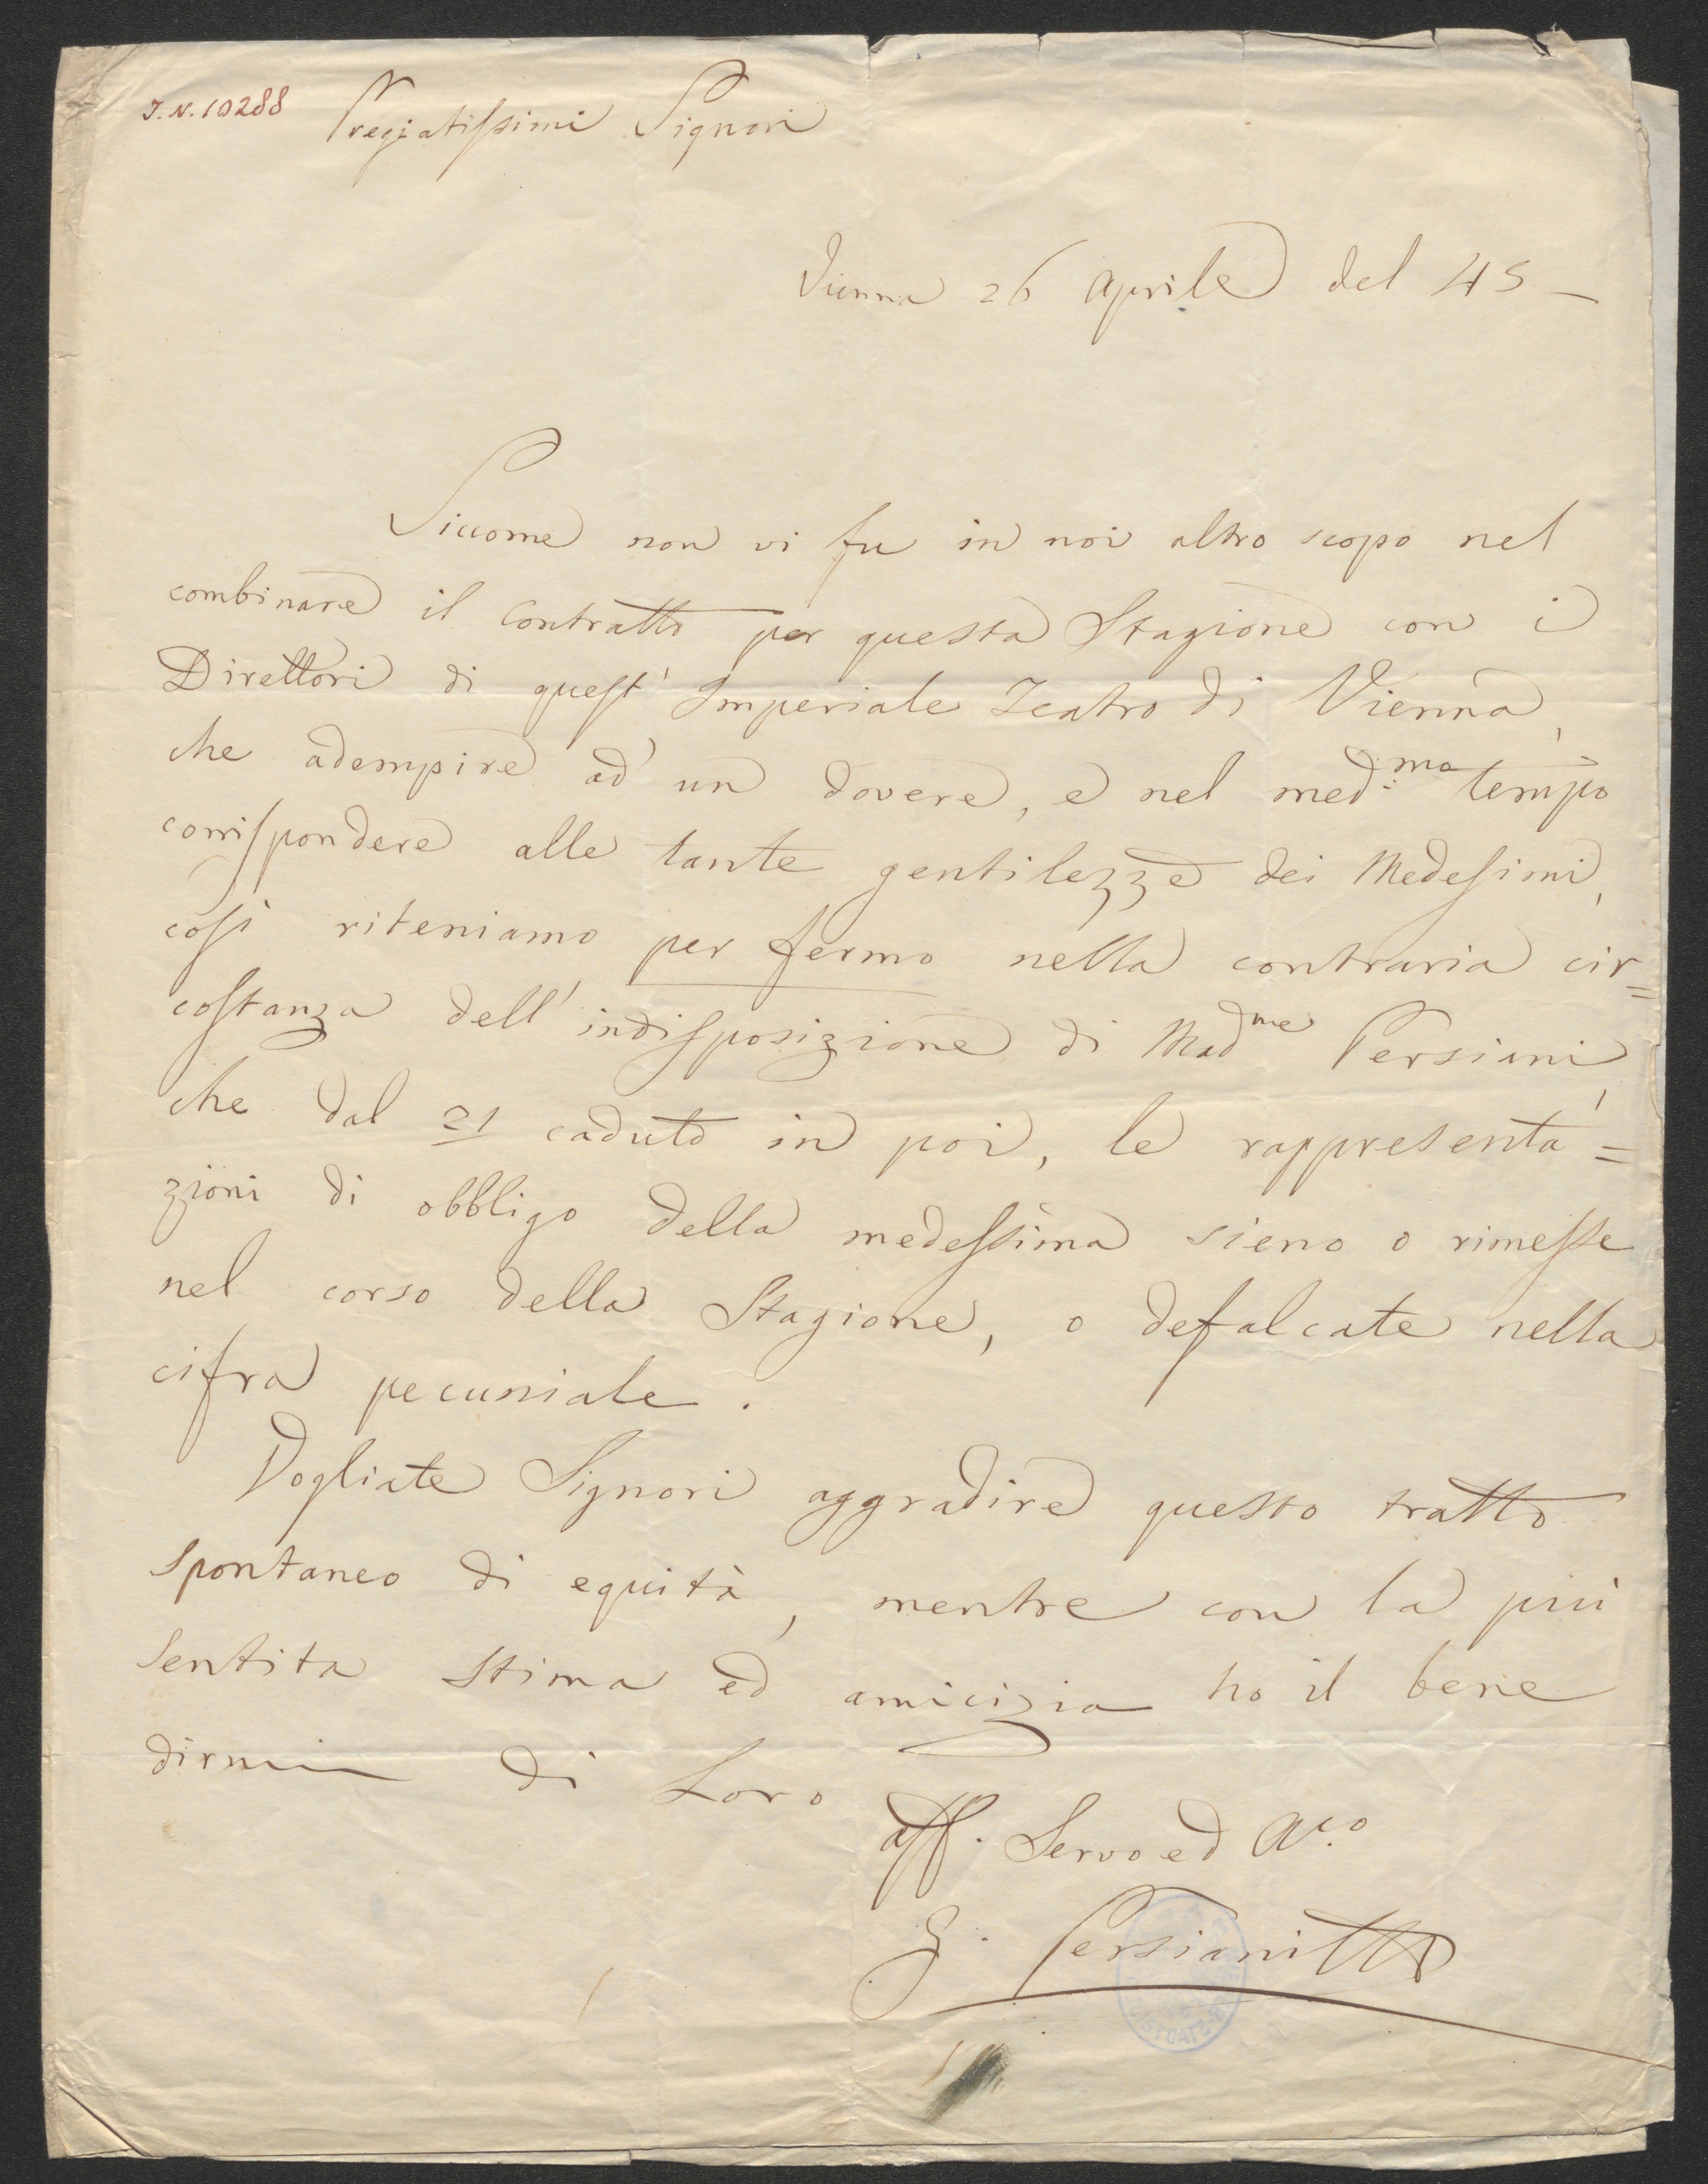 I.N.10288
Pregiatissimi Signori
Vienna 26 Aprile del 45 –
Siccome non vi fu in noi altro scopo nel
combinare il Contratto per questa Stagione con i
Direttori di quest' Imperiale Teatro di Vienna,
che adempire ad' un dovere, e nel med:mo tempo
corrispondere alle tante gentilezze dei Medesimi,
così riteniamo per fermo nella contraria cir=
costanza dell'indisposizione di Madme Persiani,
che dal 21 caduto in poi, le rappresenta=
zioni di obbligo della medessima sieno o rimesse
nel corso della Stagione, o defalcate nella
cifra pecuniale.
Vogliate Signori aggradire questo tratto
spontaneo di equità, mentre con la più
sentita stima ed amicizia ho il bene
dirmi di Loro
Aff. Servo ed Aco
G. Persiani